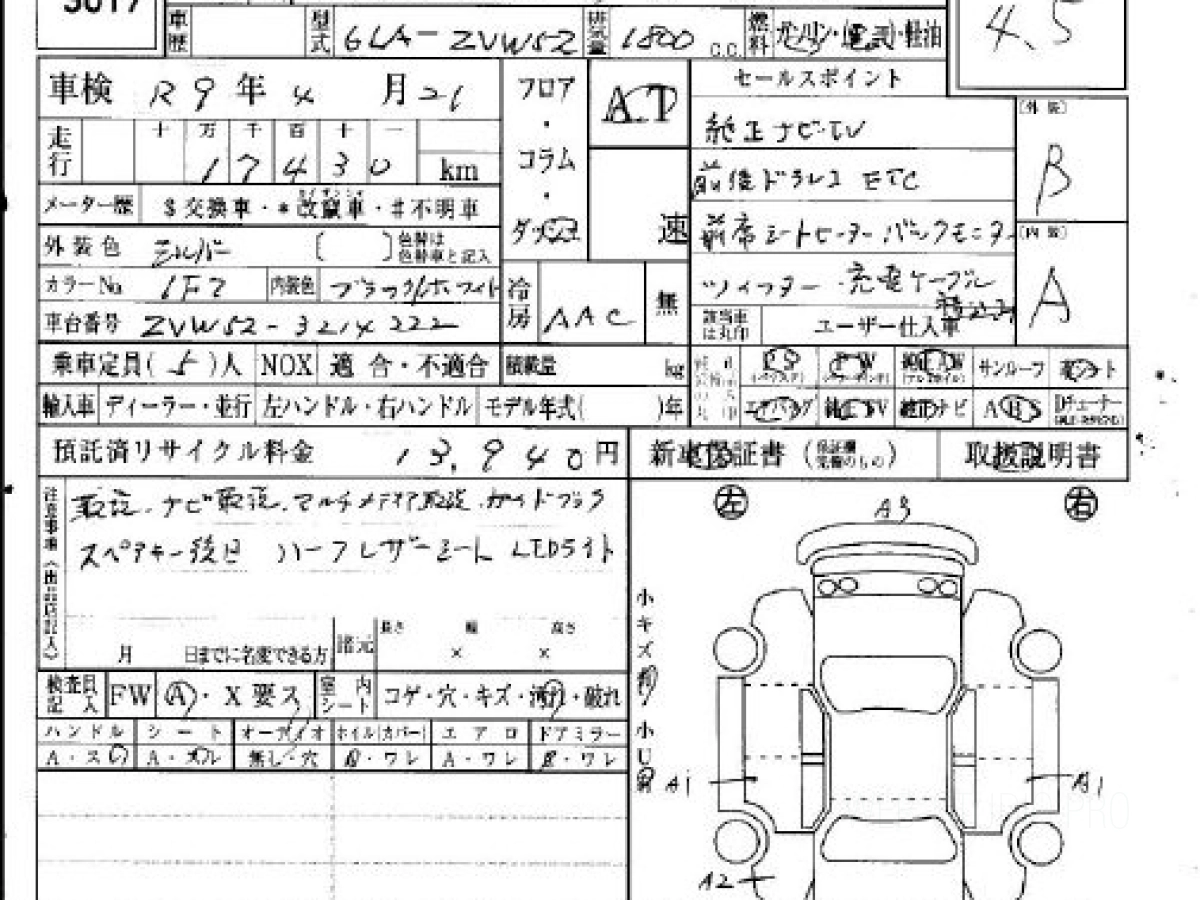 3017
車歴 型式 6LA-ZVW52 排気量 1800 C.C. 燃料 ガソリン・電気・軽油
4.5
車検 R9年4月21
フロア・コラム・ダッシュ
AT
速
セールスポイント
純正ナビ・TV
前後ドラレコ ETC
前席シートヒーター バックモニター
ツィーター 充電ケーブル
走行 十 万 千 百 十 一
17430 km
メーター歴 $交換車・*改竄車・#不明車
外装色 シルバー [ ] 色替は色替車と記入
カラーNo 1F7 内装色 ブラック/ホワイト
車台番号 ZVW52-3214222
冷房 AAC 無
該当車は丸印 ユーザー仕入車
[外装]
B
[内装]
A
乗車定員(5)人 NOX 適合・不適合 積載量 kg
サンルーフ
輸入車 ディーラー・並行 左ハンドル・右ハンドル モデル年式( )年
エアバッグ 純正TV 純正ナビ ABS
預託済リサイクル料金 13,940円
新車保証書 取扱説明書
注意事項(出品店記入)
取説、ナビ取説、マルチメディア取説、ガイドブック
スペアキー後日 ハーフレザーシート LEDライト
月 日までに名変できる方 諸元 長さ × 幅 × 高さ
検査員記入 FW A・X 要ス 室内シート コゲ・穴・キズ・汚れ・破れ
ハンドル シート オーディオ ホイル(カバー) エアロ ドアミラー
A・スレ A・スレ 無し・穴 A・ワレ A・ワレ A・ワレ
左 右
A3
小キズ有
小U有
A1
A1
A2